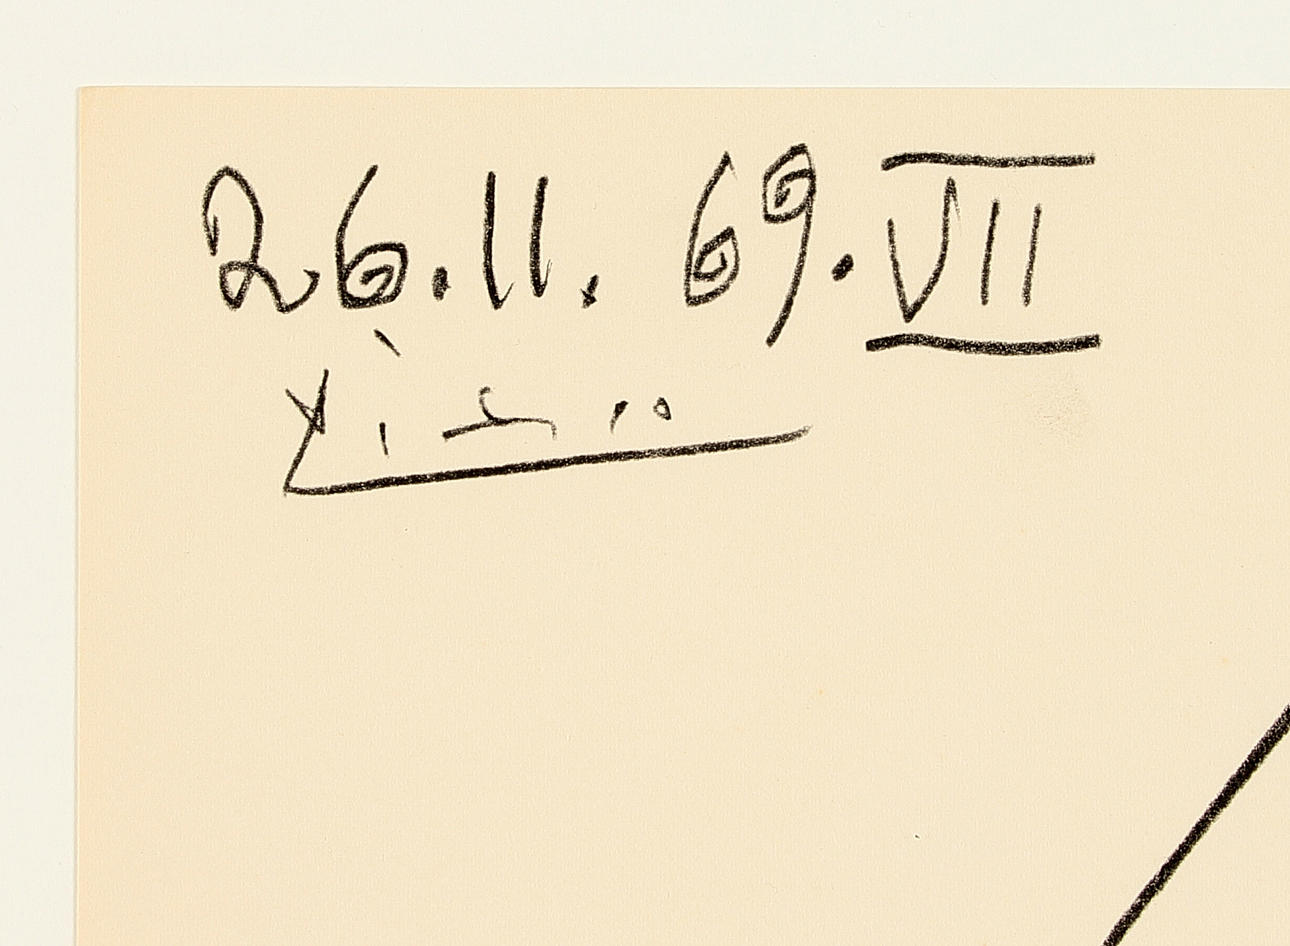 26.11.69.VII
Picasso